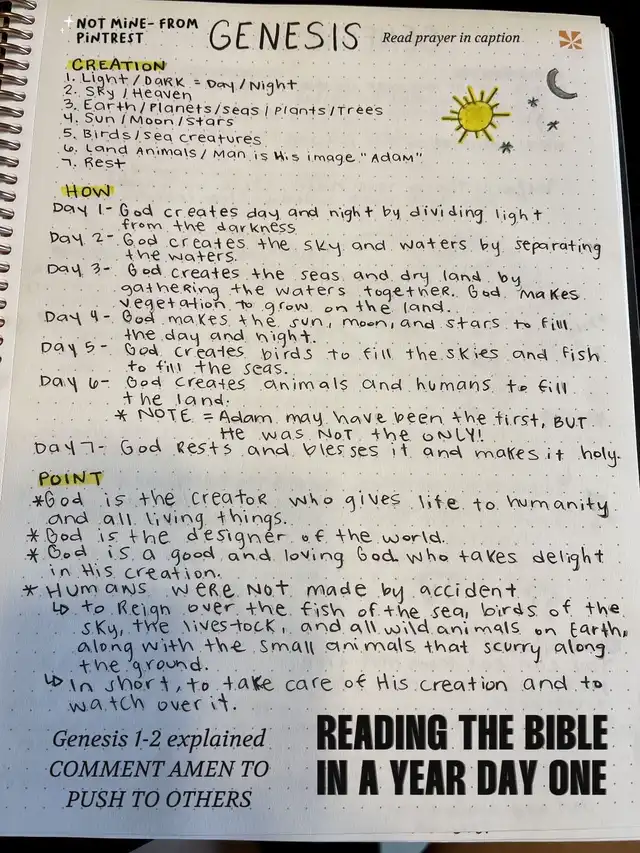 NOT MINE- FROM PiNTREST
GENESIS
Read prayer in caption
CREATION
1. Light / DARK = Day / Night
2. SKy / Heaven
3. Earth / Planets / seas / Plants / Trees
4. Sun / Moon / Stars
5. Birds / sea creatures
6. Land Animals / Man is His image "Adam"
7. Rest
HOW
Day 1- God creates day and night by dividing light
from the darkness
Day 2- God creates the sky and waters by separating
the waters.
Day 3- God creates the seas and dry land by
gathering the waters together. God makes
vegetation to grow on the land.
Day 4- God makes the sun, moon, and stars to fill
the day and night.
Day 5- God creates birds to fill the skies and fish
to fill the seas.
Day 6- God creates animals and humans to fill
the land.
* NOTE = Adam may have been the first, BUT
He was NOT the ONLY!
Day 7- God Rests and blesses it and makes it holy.
POINT
*God is the creator who gives life to humanity
and all living things.
* God is the designer of the world.
* God is a good and loving God who takes delight
in His creation.
* Humans were NOT made by accident
↳ to Reign over the fish of the sea, birds of the
sky, the livestock, and all wild animals on Earth,
along with the small animals that scurry along
the ground.
↳ In short, to take care of His creation and to
watch over it.
Genesis 1-2 explained
COMMENT AMEN TO
PUSH TO OTHERS
READING THE BIBLE
IN A YEAR DAY ONE